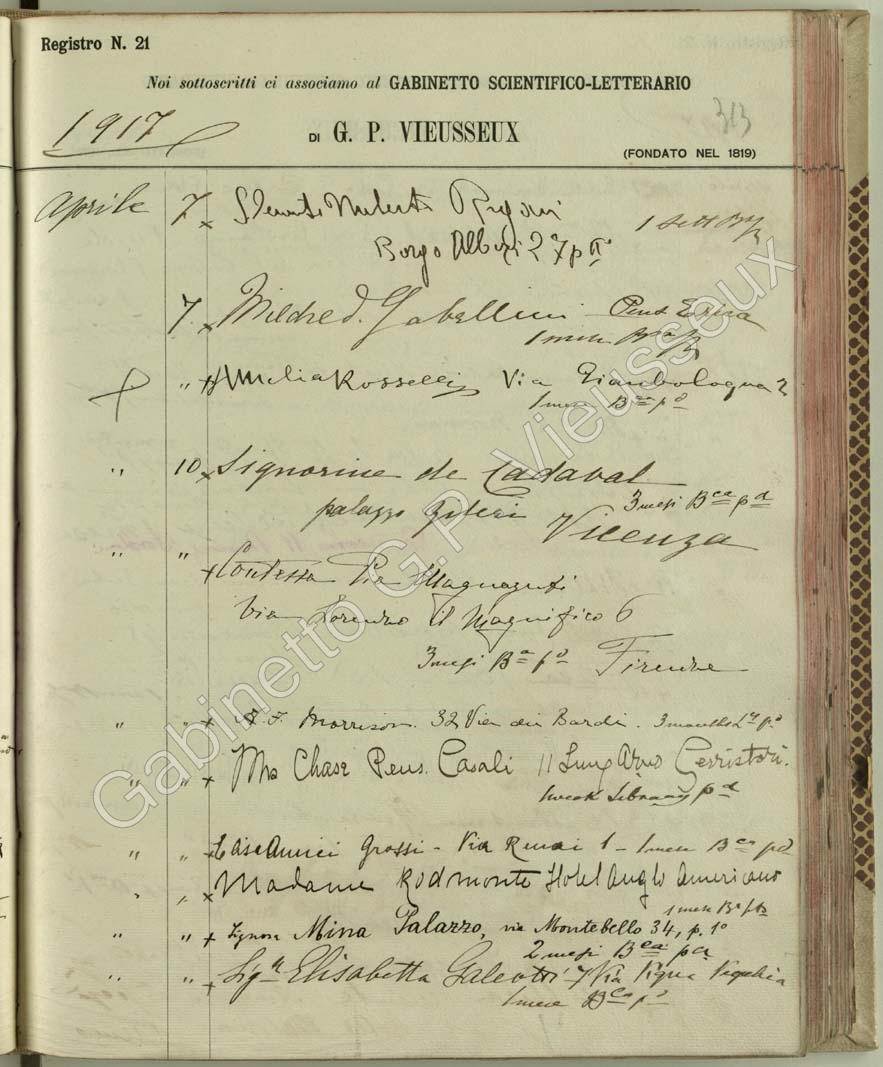 Registro N. 21
Noi sottoscritti ci associamo al GABINETTO SCIENTIFICO-LETTERARIO
313
1917
DI G. P. VIEUSSEUX
(FONDATO NEL 1819)
Aprile 7 x
1 sett
Borgo Albizi 27 p II°
7 x Mildred Gabellini Pens Erica
1 mese
" x Amelia Rosselli Via Gianbologna 2
1 mese Bca pd
" 10 x Signorine de Cadaval
3 mesi Bca pd
palazzo Vicenza
" " x Contessa Pia Magnaguti
Via Lorenzo il Magnifico 6
3 mesi Ba pd Firenze
" " x A. F. Morrison. 32 Via dei Bardi. 3 months pd
" " x Mrs Chase Pens. Casali 11 Lung Arno Serristori.
1 week Library pd
" " x Grossi - Via Renai 1 - 1 mese Bca pd
" " x Madame Rodmonte Hotel Anglo Americano
1 mese Ba
" " x Signora Mina Palazzo, via Montebello 34, p. 1°
2 mesi Bca pd
" " x Sigra Elisabetta Galeotti 7 Via Vigna Vecchia
1 mese Bca pd
Gabinetto G.P. Vieusseux